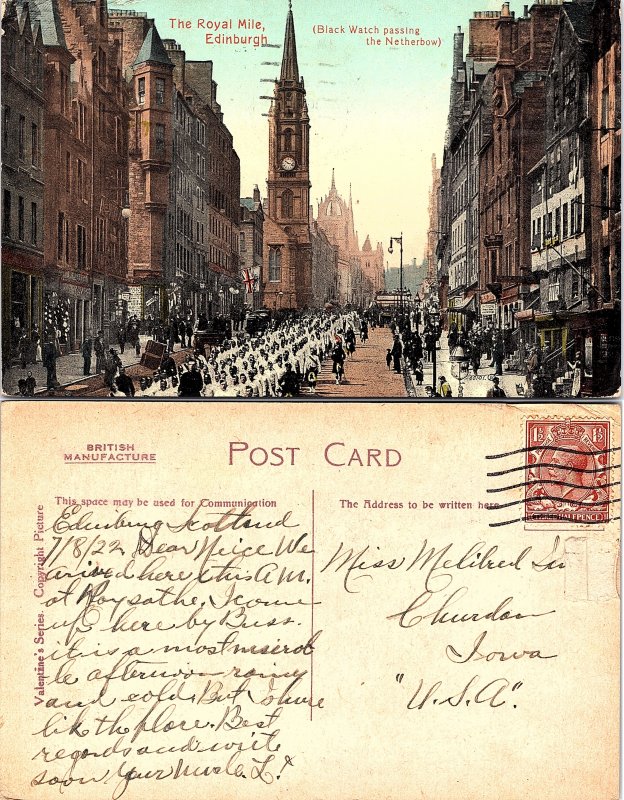 The Royal Mile,
Edinburgh
(Black Watch passing
the Netherbow)
BRITISH
MANUFACTURE
POST CARD
This space may be used for Communication
The Address to be written here
Valentine's Series. Copyright Picture
1½ 1½
THREE HALFPENCE
Edinburg Scotland
7/8/22 Dear Neice We
arived here this A.M.
at I come
up here by Buss.
it is a most miserab
le afternoon rainy
and cold. But I shure
like the place. Best
regards and write
soon your Uncle L.
Miss Meldred
Churdan
Iowa
"U.S.A".